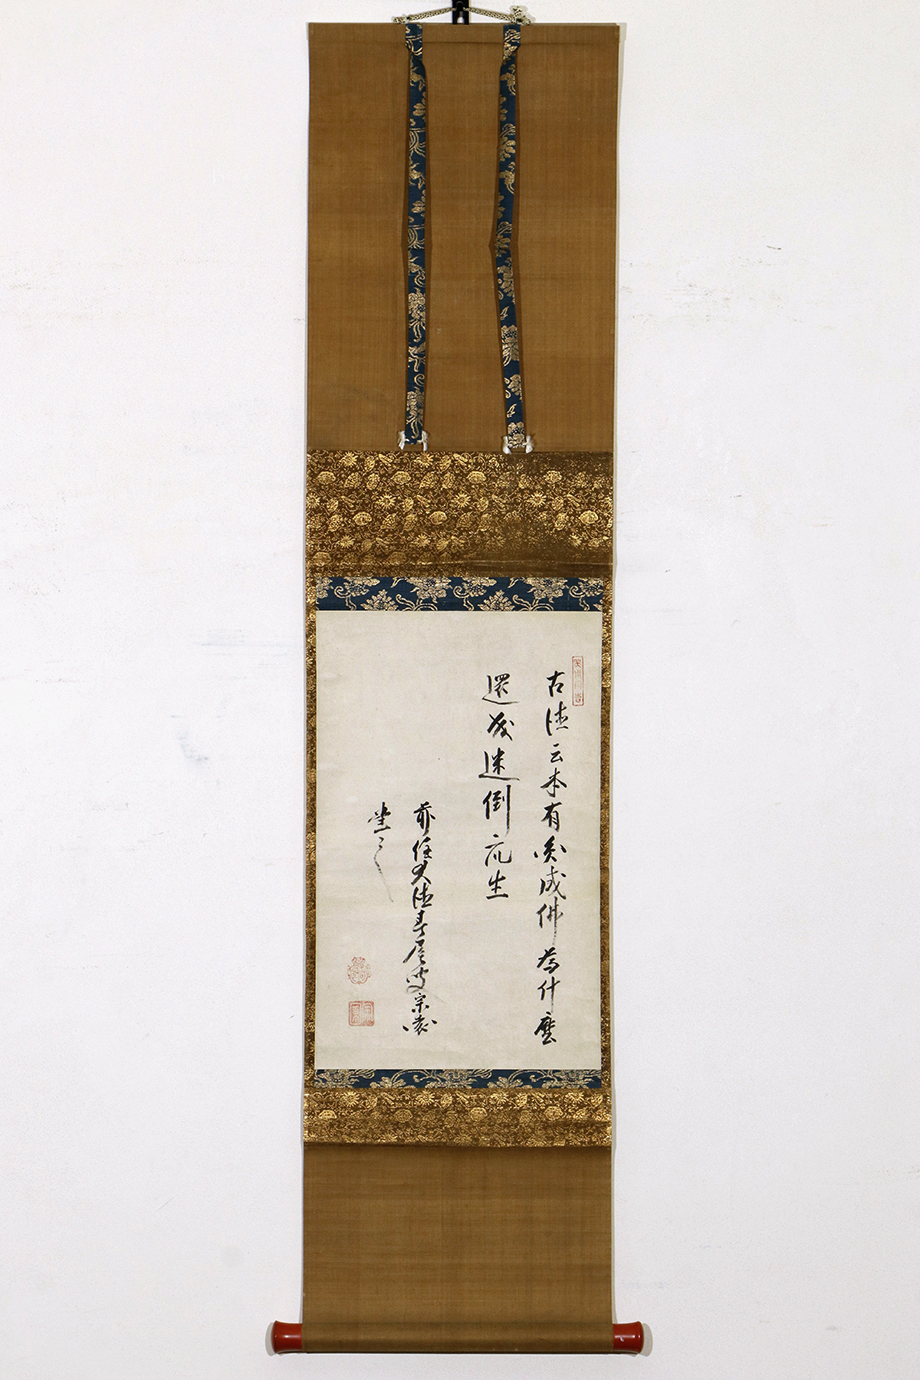 古徳云本有円成佛為什麼
還成迷倒衆生
前住大徳春屋叟宗園
書之